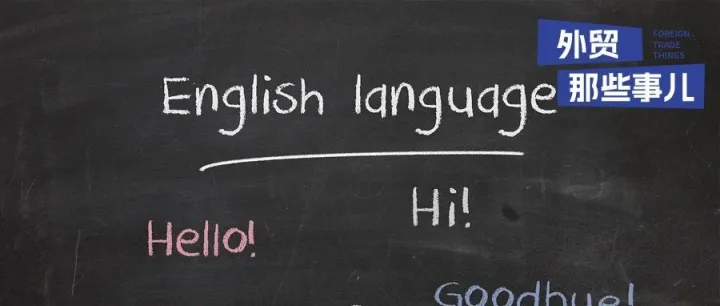 外贸
那些事儿
FOREIGN
TRADE
THINGS
English language
Hi!
Hello!
Goodbye!